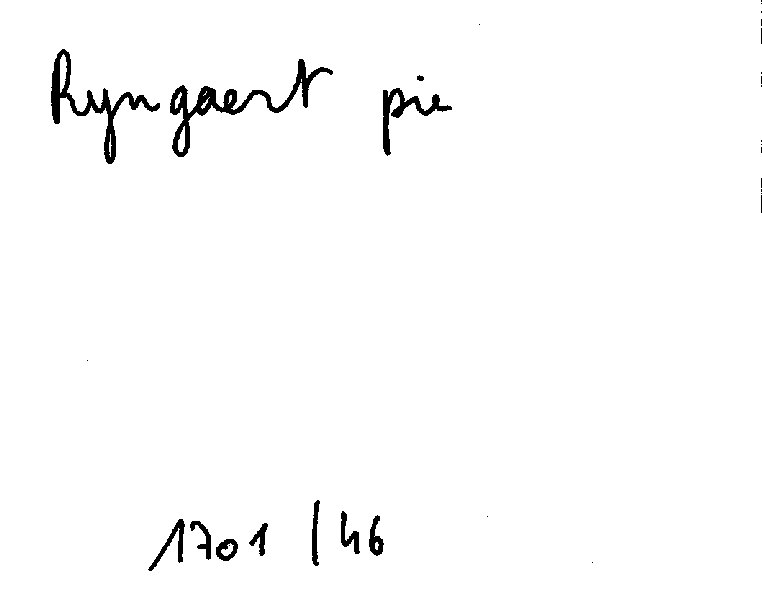 Ryngaert pie
1701 / 46